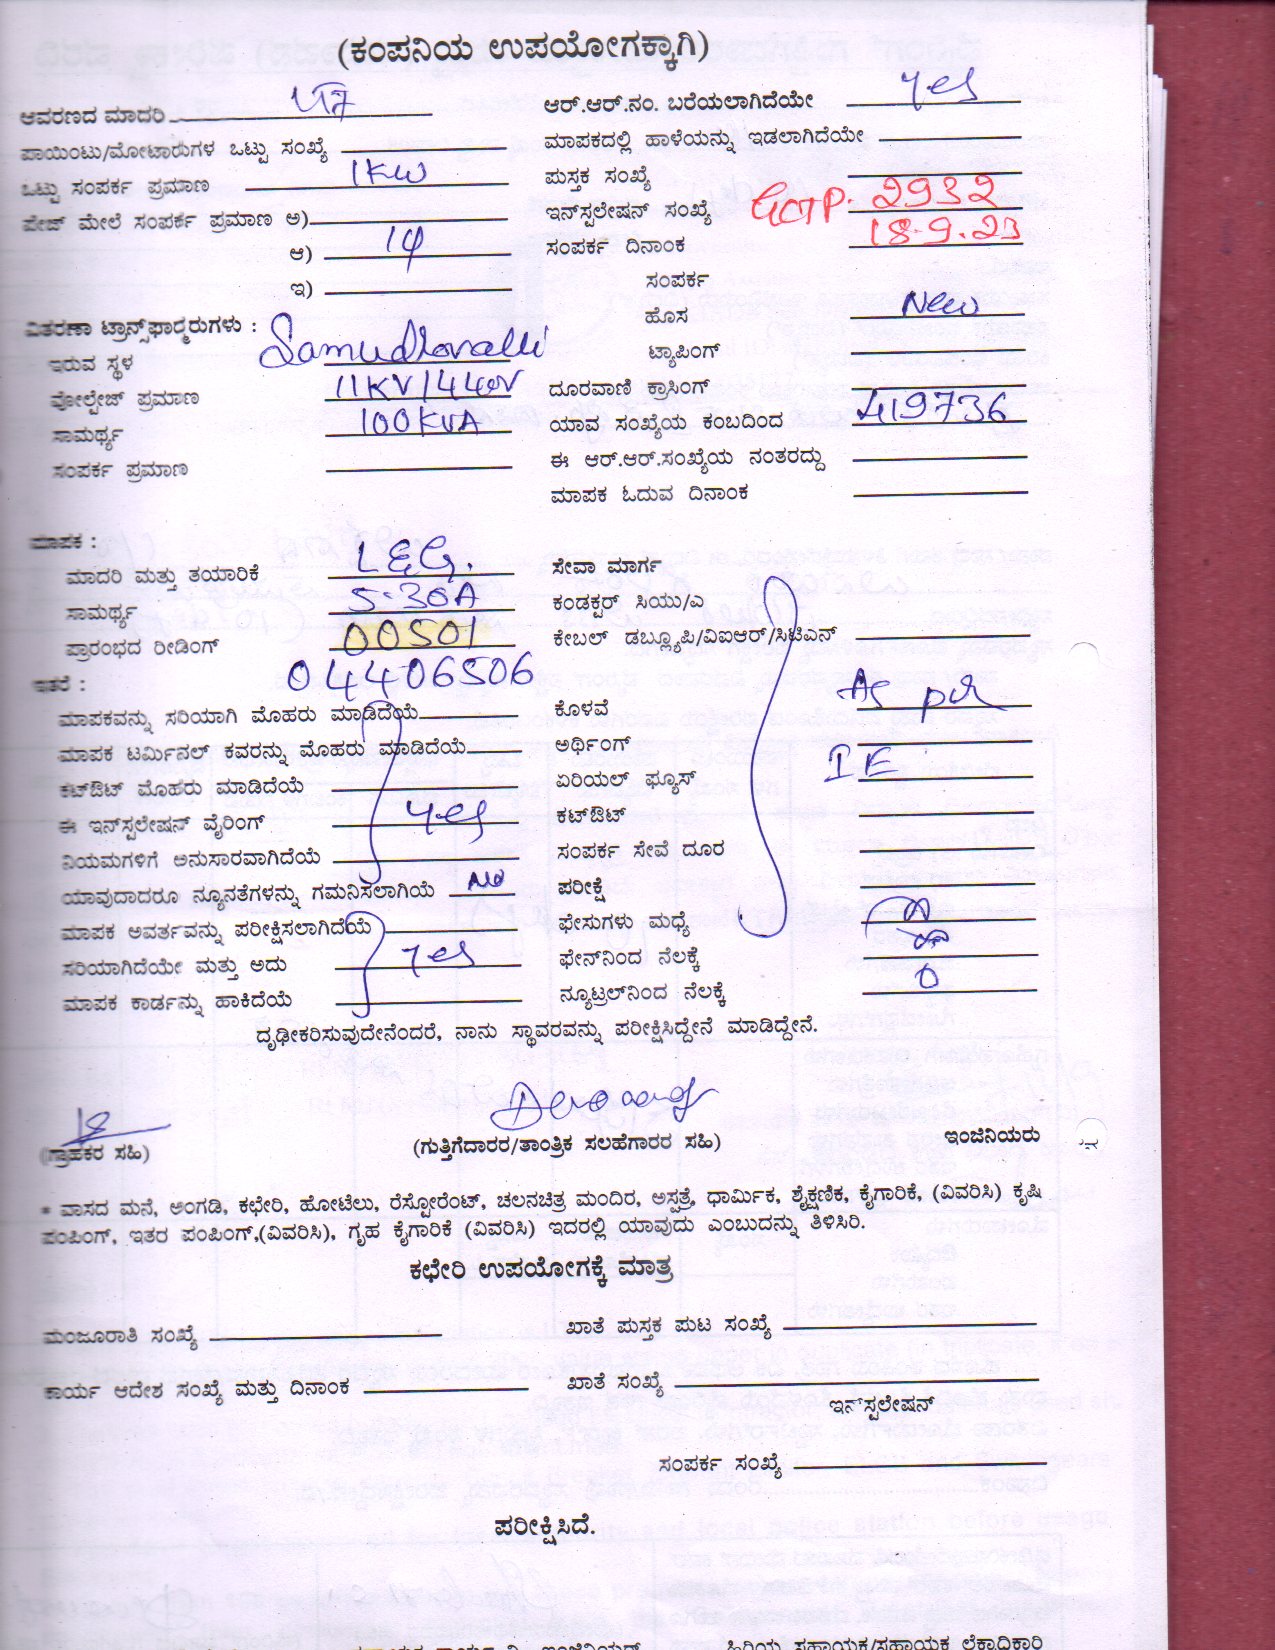 (ಕಂಪನಿಯ ಉಪಯೋಗಕ್ಕಾಗಿ)
ಆವರಣದ ಮಾದರಿ ಆರ್.ಆರ್.ನಂ. ಬರೆಯಲಾಗಿದೆಯೇ yes
ಪಾಯಿಂಟು/ಮೋಟಾರುಗಳ ಒಟ್ಟು ಸಂಖ್ಯೆ ಮಾಪಕದಲ್ಲಿ ಹಾಳೆಯನ್ನು ಇಡಲಾಗಿದೆಯೇ
ಒಟ್ಟು ಸಂಪರ್ಕ ಪ್ರಮಾಣ 1KW ಪುಸ್ತಕ ಸಂಖ್ಯೆ
ಪೇಜ್ ಮೇಲೆ ಸಂಪರ್ಕ ಪ್ರಮಾಣ ಅ) ಇನ್‌ಸ್ಪಲೇಷನ್ ಸಂಖ್ಯೆ GGTP. 2932
ಆ) 1φ ಸಂಪರ್ಕ ದಿನಾಂಕ 18.9.23
ಇ) ಸಂಪರ್ಕ
ವಿತರಣಾ ಟ್ರಾನ್ಸ್‌ಫಾರ್‍ಮರುಗಳು : ಹೊಸ New
ಇರುವ ಸ್ಥಳ Samudhravalli ಟ್ಯಾಪಿಂಗ್
ವೋಲ್ಟೇಜ್ ಪ್ರಮಾಣ 11KV/440V ದೂರವಾಣಿ ಕ್ರಾಸಿಂಗ್
ಸಾಮರ್ಥ್ಯ 100KVA ಯಾವ ಸಂಖ್ಯೆಯ ಕಂಬದಿಂದ 419736
ಸಂಪರ್ಕ ಪ್ರಮಾಣ ಈ ಆರ್.ಆರ್.ಸಂಖ್ಯೆಯ ನಂತರದ್ದು
ಮಾಪಕ ಓದುವ ದಿನಾಂಕ
ಮಾಪಕ :
ಮಾದರಿ ಮತ್ತು ತಯಾರಿಕೆ L&G. ಸೇವಾ ಮಾರ್ಗ
ಸಾಮರ್ಥ್ಯ 5-30A ಕಂಡಕ್ಟರ್ ಸಿಯು/ಎ
ಪ್ರಾರಂಭದ ರೀಡಿಂಗ್ 00501 ಕೇಬಲ್ ಡಬ್ಲ್ಯೂಪಿ/ವಿಐಆರ್/ಸಿಟಿಎನ್
ಇತರೆ : 04406506
ಮಾಪಕವನ್ನು ಸರಿಯಾಗಿ ಮೊಹರು ಮಾಡಿದೆಯೆ ಕೊಳವೆ As per
ಮಾಪಕ ಟರ್ಮಿನಲ್ ಕವರನ್ನು ಮೊಹರು ಮಾಡಿದೆಯೆ ಅರ್ಥಿಂಗ್
ಕಟ್‌ಔಟ್ ಮೊಹರು ಮಾಡಿದೆಯೆ ಏರಿಯಲ್ ಫ್ಯೂಸ್ IE
ಈ ಇನ್‌ಸ್ಪಲೇಷನ್ ವೈರಿಂಗ್ yes ಕಟ್‌ಔಟ್
ನಿಯಮಗಳಿಗೆ ಅನುಸಾರವಾಗಿದೆಯೆ ಸಂಪರ್ಕ ಸೇವೆ ದೂರ
ಯಾವುದಾದರೂ ನ್ಯೂನತೆಗಳನ್ನು ಗಮನಿಸಲಾಗಿಯೆ No ಪರೀಕ್ಷೆ
ಮಾಪಕ ಅವರ್ತವನ್ನು ಪರೀಕ್ಷಿಸಲಾಗಿದೆಯೆ ಫೇಸುಗಳು ಮಧ್ಯೆ
ಸರಿಯಾಗಿದೆಯೇ ಮತ್ತು ಅದು yes ಫೇನ್‌ನಿಂದ ನೆಲಕ್ಕೆ
ಮಾಪಕ ಕಾರ್ಡನ್ನು ಹಾಕಿದೆಯೆ ನ್ಯೂಟ್ರಲ್‌ನಿಂದ ನೆಲಕ್ಕೆ 0
ದೃಢೀಕರಿಸುವುದೇನೆಂದರೆ, ನಾನು ಸ್ಥಾವರವನ್ನು ಪರೀಕ್ಷಿಸಿದ್ದೇನೆ ಮಾಡಿದ್ದೇನೆ.
(ಗ್ರಾಹಕರ ಸಹಿ) (ಗುತ್ತಿಗೆದಾರರ/ತಾಂತ್ರಿಕ ಸಲಹೆಗಾರರ ಸಹಿ) ಇಂಜಿನಿಯರು
* ವಾಸದ ಮನೆ, ಅಂಗಡಿ, ಕಛೇರಿ, ಹೋಟಿಲು, ರೆಸ್ಟೋರೆಂಟ್, ಚಲನಚಿತ್ರ ಮಂದಿರ, ಅಸ್ಪತ್ರೆ, ಧಾರ್ಮಿಕ, ಶೈಕ್ಷಣಿಕ, ಕೈಗಾರಿಕೆ, (ವಿವರಿಸಿ) ಕೃಷಿ
ಪಂಪಿಂಗ್, ಇತರ ಪಂಪಿಂಗ್,(ವಿವರಿಸಿ), ಗೃಹ ಕೈಗಾರಿಕೆ (ವಿವರಿಸಿ) ಇದರಲ್ಲಿ ಯಾವುದು ಎಂಬುದನ್ನು ತಿಳಿಸಿರಿ.
ಕಛೇರಿ ಉಪಯೋಗಕ್ಕೆ ಮಾತ್ರ
ಮಂಜೂರಾತಿ ಸಂಖ್ಯೆ ಖಾತೆ ಪುಸ್ತಕ ಪುಟ ಸಂಖ್ಯೆ
ಕಾರ್ಯ ಆದೇಶ ಸಂಖ್ಯೆ ಮತ್ತು ದಿನಾಂಕ ಖಾತೆ ಸಂಖ್ಯೆ
ಇನ್‌ಸ್ಪಲೇಷನ್
ಸಂಪರ್ಕ ಸಂಖ್ಯೆ
ಪರೀಕ್ಷಿಸಿದೆ.
ಹಿರಿಯ ಸಹಾಯಕ/ಸಹಾಯಕ ಲೆಕ್ಕಾಧಿಕಾರಿ